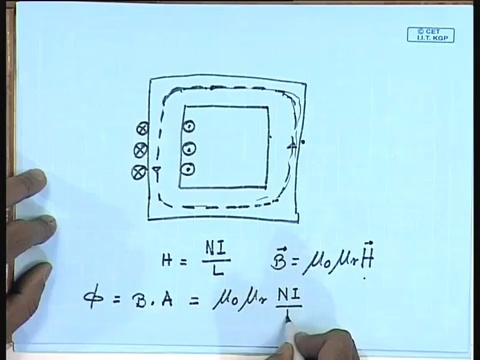 © CET
I.I.T. KGP
H = NI/L    B⃗ = μ₀μᵣH⃗
Φ = B.A = μ₀μᵣ NI